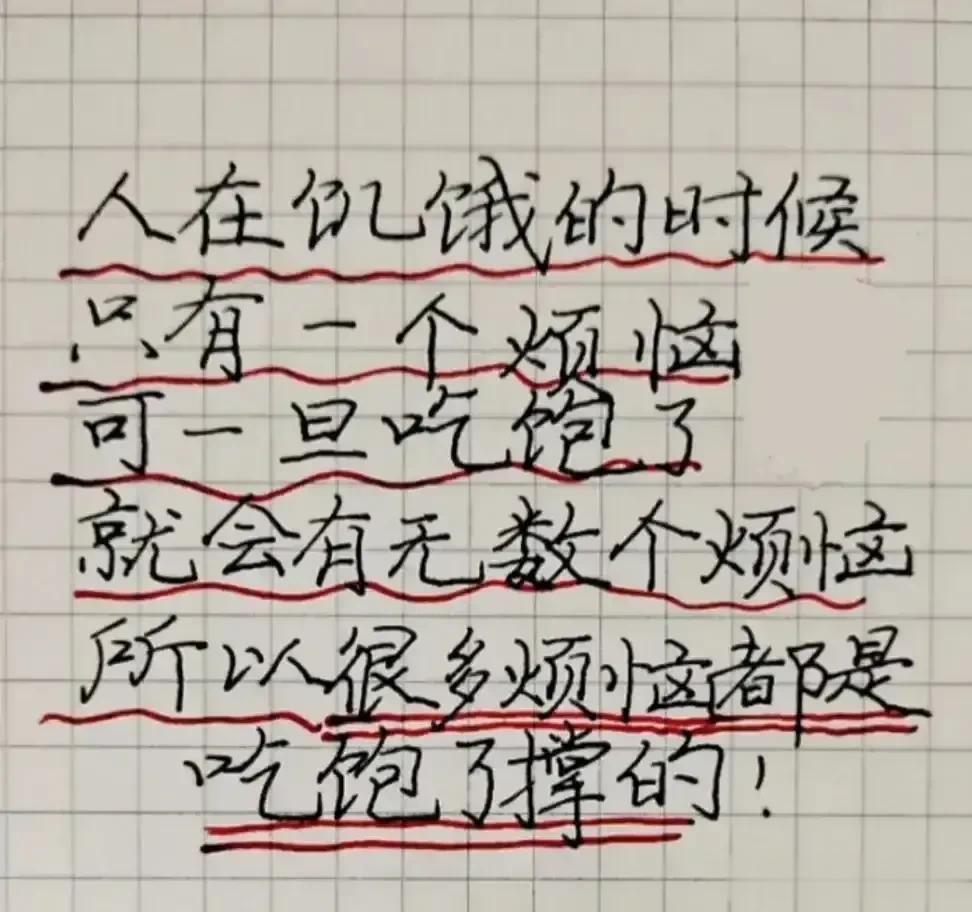 人在饥饿的时候
只有一个烦恼
可一旦吃饱了
就会有无数个烦恼
所以很多烦恼都是
吃饱了撑的！